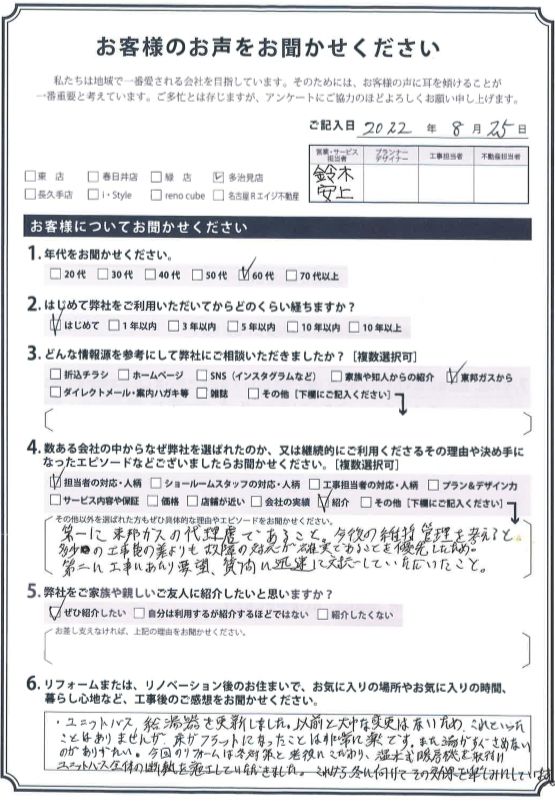 お客様のお声をお聞かせください
私たちは地域で一番愛される会社を目指しています。そのためには、お客様の声に耳を傾けることが
一番重要と考えています。ご多忙とは存じますが、アンケートにご協力のほどよろしくお願い申し上げます。
ご記入日 2022 年 8 月 25 日
営業・サービス担当者 プランナーデザイナー 工事担当者 不動産担当者
鈴木
安上
東店 春日井店 緑店 多治見店
長久手店 i・Style reno cube 名古屋Rエイジ不動産
お客様についてお聞かせください
1. 年代をお聞かせください。
20代 30代 40代 50代 60代 70代以上
2. はじめて弊社をご利用いただいてからどのくらい経ちますか？
はじめて 1年以内 3年以内 5年以内 10年以内 10年以上
3. どんな情報源を参考にして弊社にご相談いただきましたか？［複数選択可］
折込チラシ ホームページ SNS（インスタグラムなど） 家族や知人からの紹介 東邦ガスから
ダイレクトメール・案内ハガキ等 雑誌 その他［下欄にご記入ください］
4. 数ある会社の中からなぜ弊社を選ばれたのか、又は継続的にご利用くださるその理由や決め手に
なったエピソードなどございましたらお聞かせください。［複数選択可］
担当者の対応・人柄 ショールームスタッフの対応・人柄 工事担当者の対応・人柄 プラン＆デザイン力
サービス内容や保証 価格 店舗が近い 会社の実績 紹介 その他［下欄にご記入ください］
その他以外を選ばれた方もぜひ具体的な理由やエピソードをお聞かせください。
第一に東邦ガスの代理店であること。今後の維持管理を考えると
の工事費の差よりも故障の対応が確実であることを優先したため。
第二に工事にあたり要望、質問に迅速に対応していただいたこと。
5. 弊社をご家族や親しいご友人に紹介したいと思いますか？
ぜひ紹介したい 自分は利用するが紹介するほどではない 紹介したくない
お差し支えなければ、上記の理由をお聞かせください。
6. リフォームまたは、リノベーション後のお住まいで、お気に入りの場所やお気に入りの時間、
暮らし心地など、工事後のご感想をお聞かせください。
・ユニットバス、給湯器を更新しました。以前と大きな変更はないため、これといった
ことはありませんが、床がフラットになったことは非常に楽です。また湯がすぐさめない
のがありがたい。今回のリフォームは冬対策と老後にこだわり、温水式暖房機を取付け
ユニットバス全体の断熱を施工していただきました。これから冬に向けてその効果を楽しみにしています